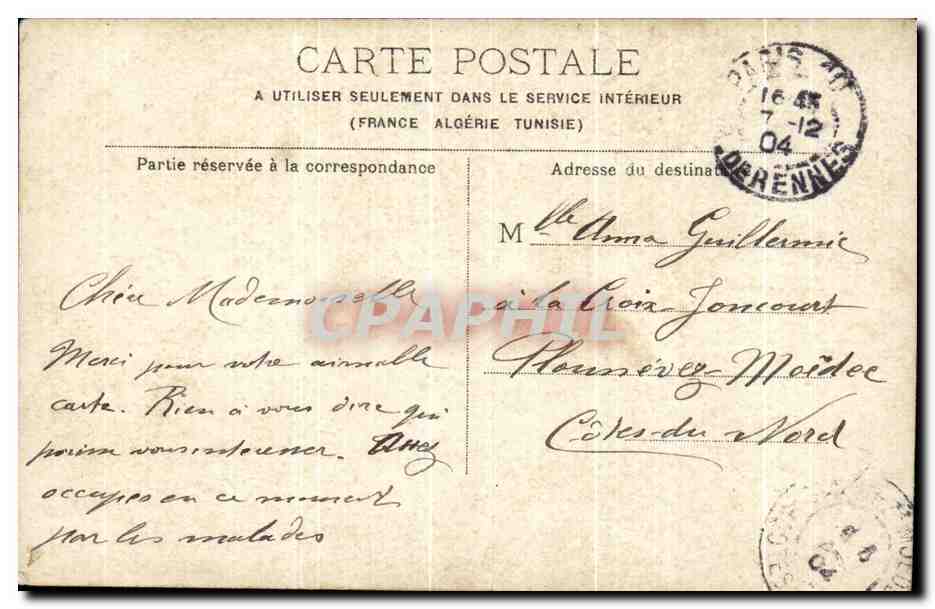 CARTE POSTALE
A UTILISER SEULEMENT DANS LE SERVICE INTÉRIEUR
(FRANCE ALGÉRIE TUNISIE)
Partie réservée à la correspondance
Chère Mademoiselle
Merci pour votre aimable
carte. Rien à vous dire qui
puisse vous interesser. Assez
occupés en ce moment
par les malades
Adresse du destinat
Mlle Anna Guillermic
à la Croix Joncourt
Plounévez-Moëdec
Côtes-du Nord
PARIS 10
16 45
7 -12
04
DE RENNES
CPAPHIL
04